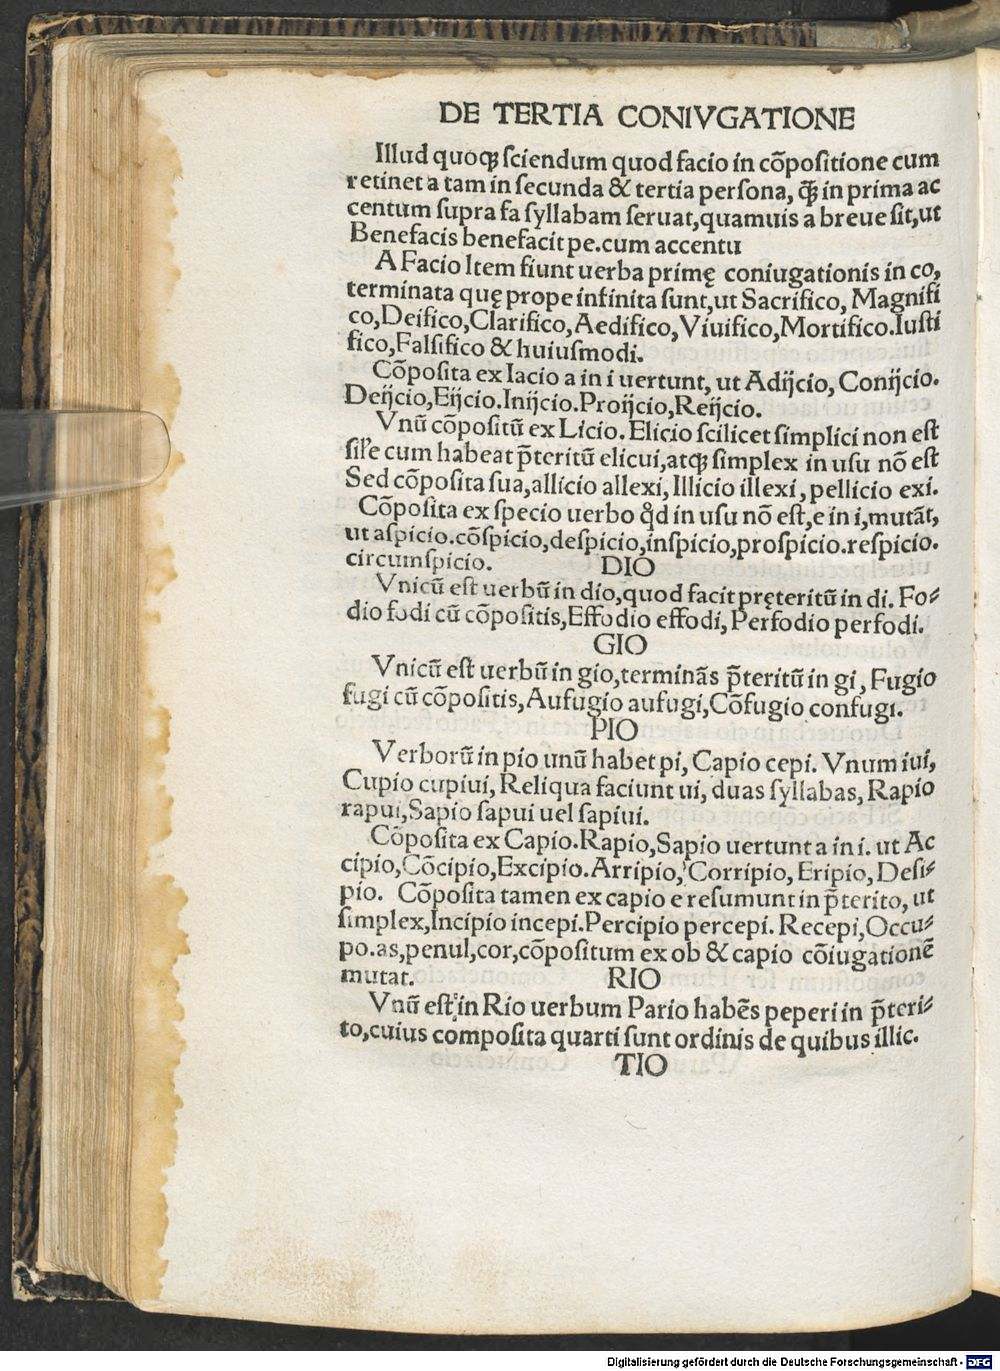 DE TERTIA CONIVGATIONE
Illud quoqꝫ ſciendum quod facio in cõpoſitione cum
retinet a tam in ſecunda & tertia perſona, ꝙ̃ in prima ac
centum ſupra fa ſyllabam ſeruat,quamuis a breue ſit,ut
Benefacis benefacit pe.cum accentu
A Facio Item fiunt uerba primę coniugationis in co,
terminata quę prope infinita ſunt,ut Sacrifico, Magnifi
co,Deifico,Clarifico,Aedifico,Viuifico,Mortifico.Iuſti
fico,Falſifico & huiuſmodi.
Cõpoſita ex Iacio a in i uertunt, ut Adijcio, Conijcio.
Deijcio,Eijcio.Inijcio.Proijcio,Reijcio.
Vnũ cõpoſitũ ex Licio. Elicio ſcilicet ſimplici non eſt
ſil'e cum habeat p̃teritũ elicui,atqꝫ ſimplex in uſu nõ eſt
Sed cõpoſita ſua,allicio allexi, Illicio illexi, pellicio exi.
Cõpoſita ex ſpecio uerbo qd̾ in uſu nõ eſt,e in i,mutãt,
ut aſpicio.cõſpicio,deſpicio,inſpicio,proſpicio.reſpicio.
circumſpicio. DIO
Vnicũ eſt uerbũ in dio,quod facit pręteritũ in di. Fo⸗
dio fodi cũ cõpoſitis,Effodio effodi, Perfodio perfodi.
GIO
Vnicũ eſt uerbũ in gio,terminãs p̃teritũ in gi, Fugio
fugi cũ cõpoſitis,Aufugio aufugi,Cõfugio confugi.
PIO
Verborũ in pio unũ habet pi, Capio cepi. Vnum iui,
Cupio cupiui, Reliqua faciunt ui, duas ſyllabas, Rapio
rapui,Sapio ſapui uel ſapiui.
Cõpoſita ex Capio.Rapio,Sapio uertunt a in i. ut Ac
cipio,Cõcipio,Excipio.Arripio, Corripio, Eripio, Deſi⸗
pio. Cõpoſita tamen ex capio e reſumunt in p̃terito, ut
ſimplex,Incipio incepi.Percipio percepi. Recepi,Occu⸗
po.as,penul,cor,cõpoſitum ex ob & capio cõiugationẽ
mutat. RIO
Vnũ eſt in Rio uerbum Pario habẽs peperi in p̃teri⸗
to,cuius compoſita quarti ſunt ordinis de quibus illic.
TIO
Digitalisierung gefördert durch die Deutsche Forschungsgemeinschaft - DFG